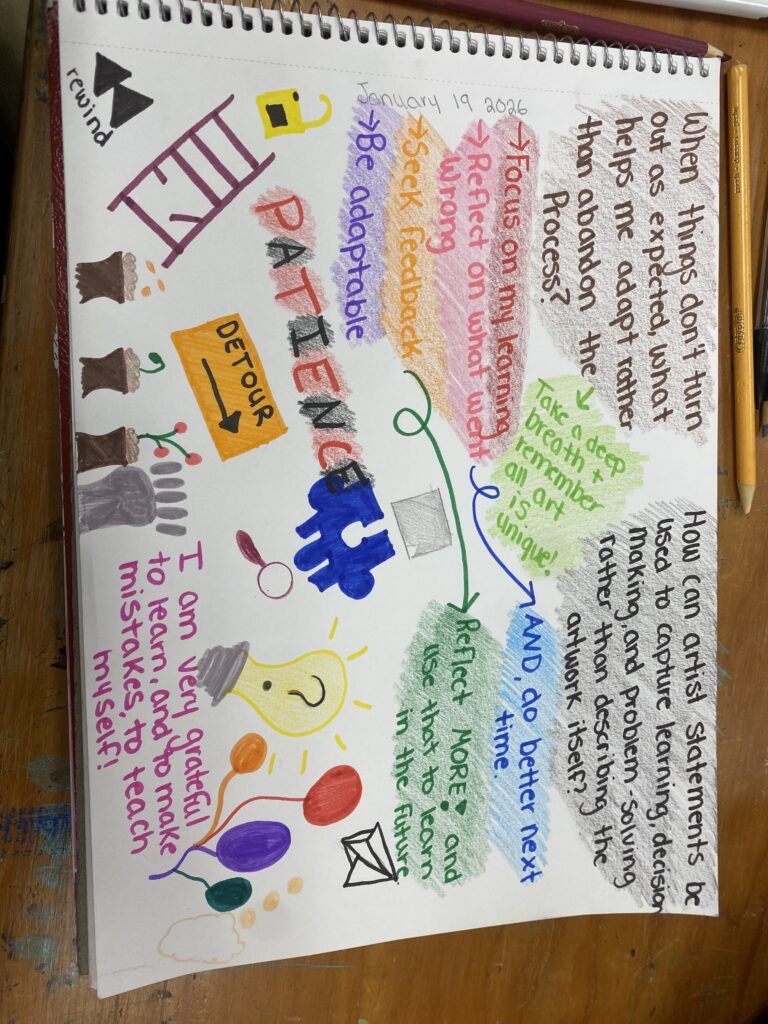 When things don't turn
out as expected, what
helps me adapt rather
than abandon the
Process?
How can artist statements be
used to capture learning, decision
making, and problem-solving
rather than describing the
artwork itself?
Take a deep
breath +
remember
all art
is
unique!
January 19 2026
→Focus on my learning
→Reflect on what went
wrong
→Seek feedback
→Be adaptable
AND, do better next
time.
Reflect MORE! and
use that to learn
in the future
PATIENCE
DETOUR
rewind
I am very grateful
to learn, and to make
mistakes, to teach
myself!